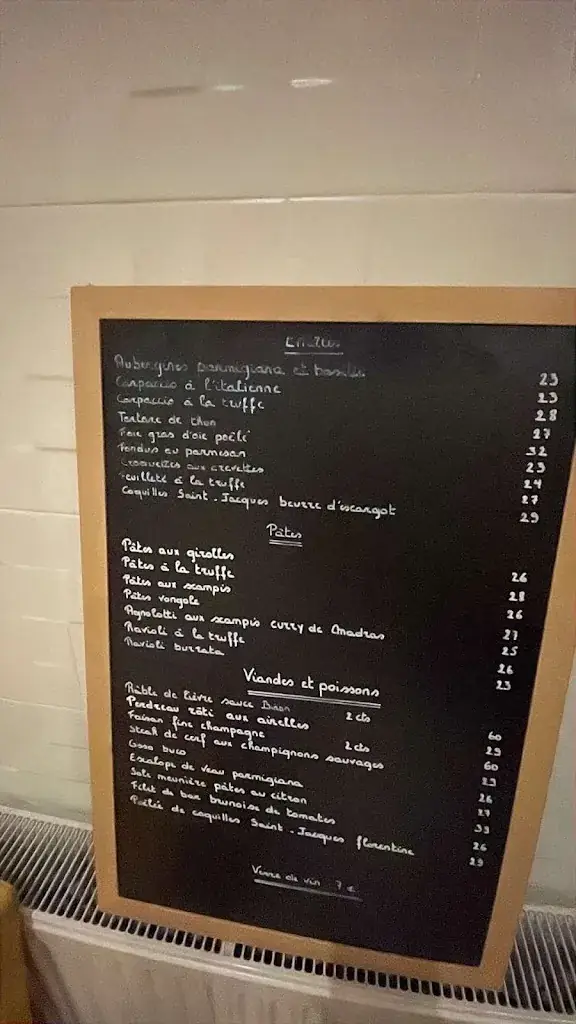 Entrées
Aubergines parmigiana et basilic 23
Carpaccio à l'italienne 23
Carpaccio à la truffe 28
Tartare de thon 27
Foie gras d'oie poêlé 32
Fondus au parmesan 23
Croquettes aux crevettes 24
Feuilleté à la truffe 27
Coquilles Saint-Jacques beurre d'escargot 29
Pâtes
Pâtes aux girolles 26
Pâtes à la truffe 28
Pâtes aux scampis 26
Pâtes vongole 27
Agnolotti aux scampis curry de Madras 25
Ravioli à la truffe 26
Ravioli burrata 23
Viandes et poissons
Râble de lièvre sauce 2 cts 60
Perdreau rôti aux airelles 29
Faisan fine champagne 2 cts 60
Steak de cerf aux champignons sauvages 29
Osso buco 26
Escalope de veau parmigiana 27
Sole meunière pâtes au citron 39
Filet de bar brunoise de tomates 26
Poêlée de coquilles Saint-Jacques florentine 29
Verre de vin 7 €